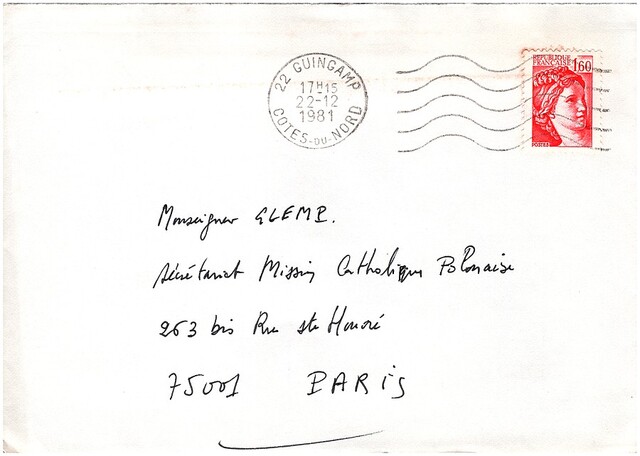 22 GUINGAMP
17H15
22-12
1981
COTES-DU-NORD
REPUBLIQUE
FRANCAISE
1,60
POSTES
Monseigneur GLEMP.
Sécrétariat Mission Catholique Polonaise
263 bis Rue St Honoré
75001 PARIS